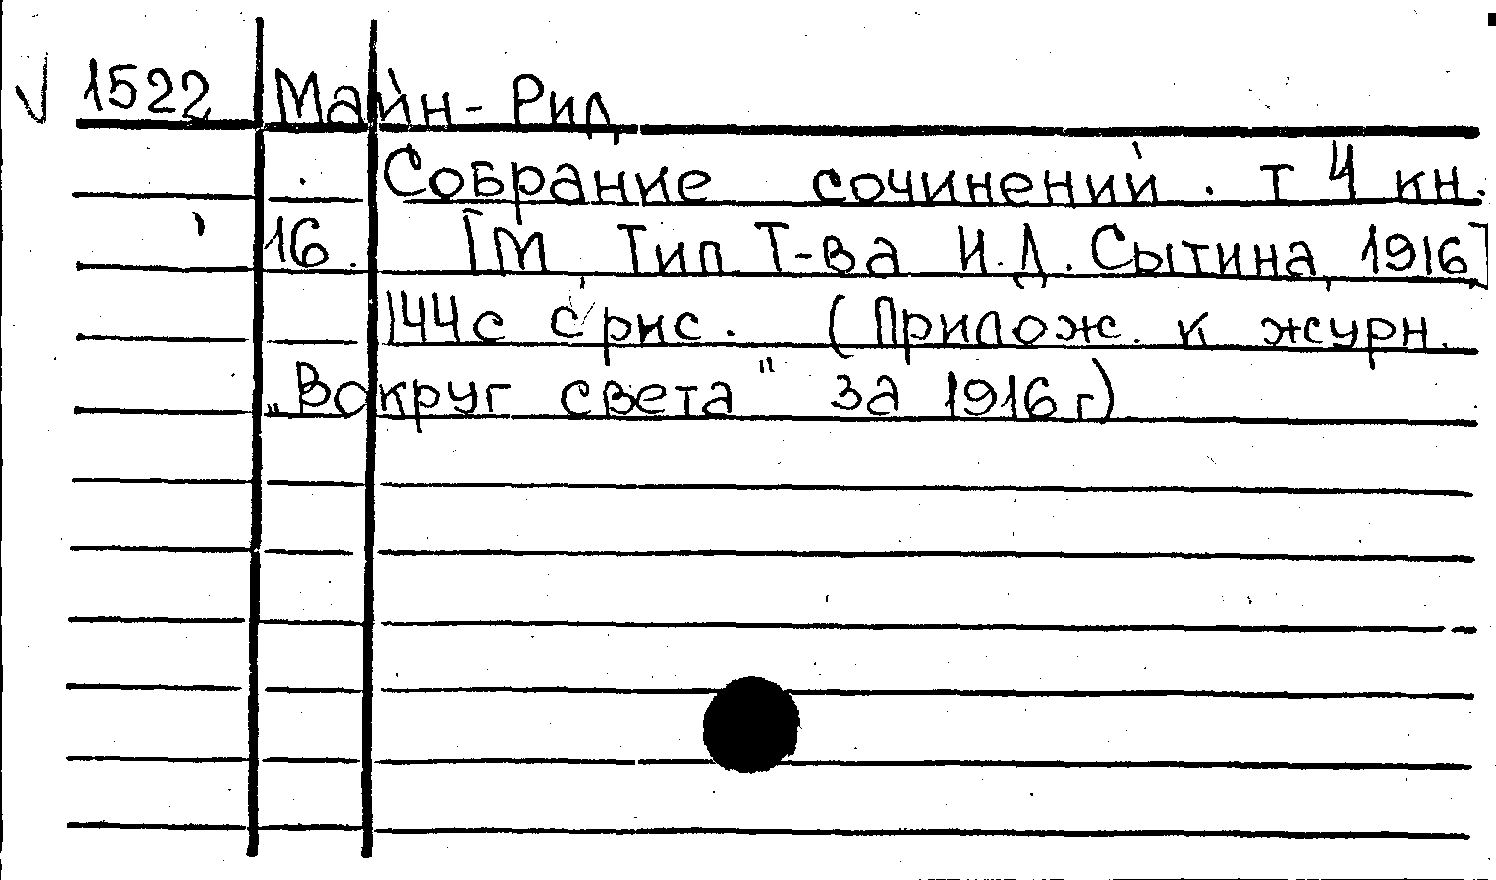 √ 1522 Майн-Рид
Собрание сочинений. т 4 кн.
16. [М Тип Т-ва И.Д. Сытина, 1916]
144с с рис. (Прилож. к журн.
„Вокруг света" за 1916г)